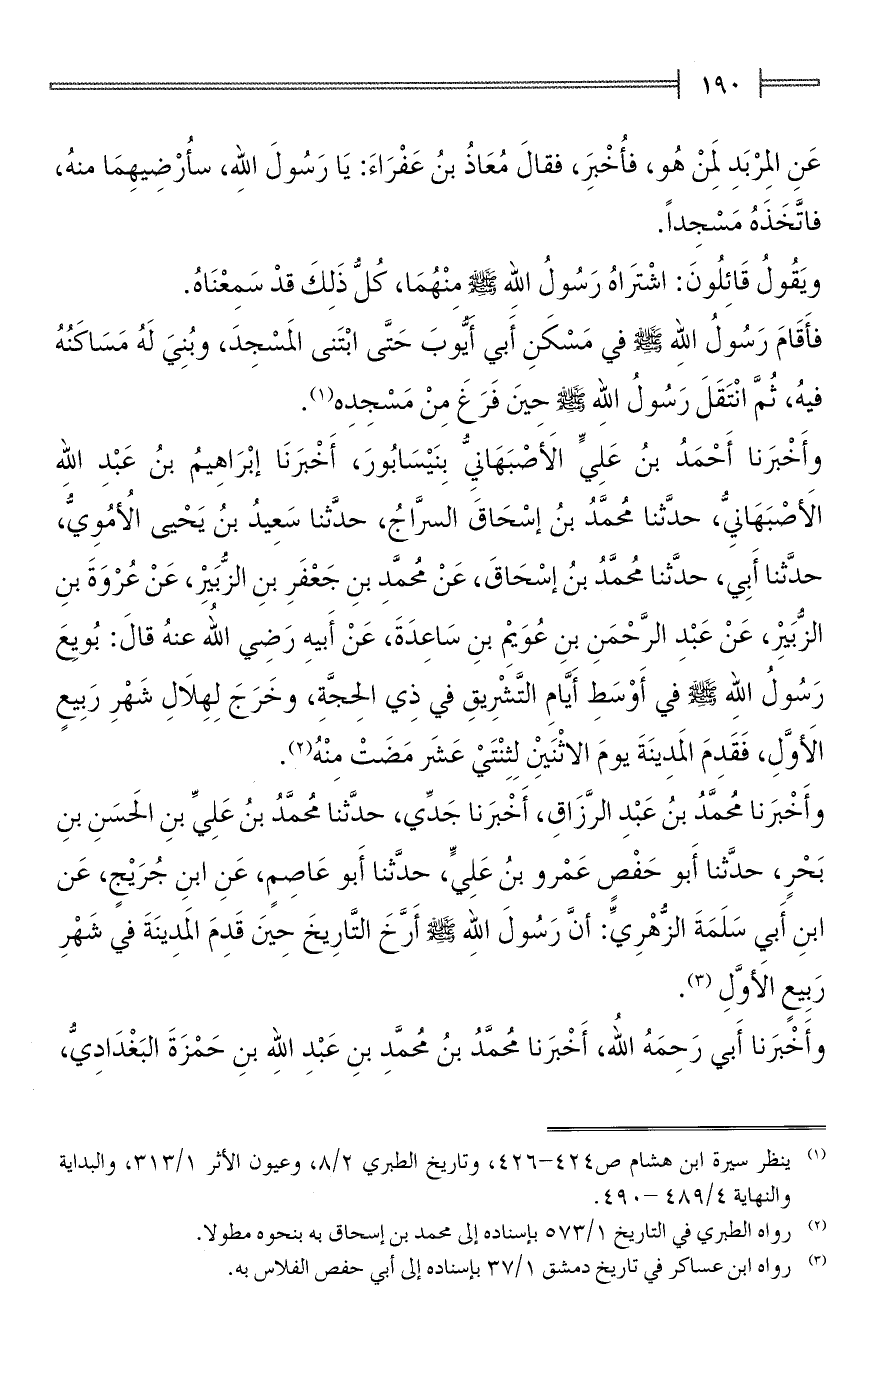 ١٩٠
عَنِ المِرْبَدِ لَمِنْ هُو، فأُخْبِرَ، فقالَ مُعَاذُ بنُ عَفْرَاءَ: يَا رَسُولَ اللهِ، سأُرْضِيهِمَا منهُ،
فاتَّخَذَهُ مَسْجِداً.
ويَقُولُ قَائِلُونَ: اشْتَراهُ رَسُولُ اللهِ ﷺ مِنْهُمَا، كُلُّ ذَلِكَ قدْ سَمِعْنَاهُ.
فأَقَامَ رَسُولُ اللهِ ﷺ في مَسْكَنِ أَبي أَيُّوبَ حَتَّى ابْتَنى المَسْجِدَ، وبُنِيَ لَهُ مَسَاكنُهُ
فيهُ، ثُمَّ انْتَقَلَ رَسُولُ اللهِ ﷺ حِينَ فَرَغَ مِنْ مَسْجِدِه(١).
وأَخْبَرَنا أَحْمَدُ بنُ عَليٍّ الأَصْبَهَانيُّ بنَيْسَابُورَ، أَخْبَرَنَا إبْرَاهِيمُ بنُ عَبْدِ اللهِ
الأَصْبَهَانيُّ، حدَّثنا مُحمَّدُ بنُ إسْحَاقَ السرَّاجُ، حدَّثنا سَعِيدُ بنُ يَحْيى الأُمَوِيُّ،
حدَّثنا أَبي، حدَّثنا مُحمَّدُ بنُ إسْحَاقَ، عَنْ مُحمَّدِ بنِ جَعْفَرِ بنِ الزُّبَيْرِ، عَنْ عُرْوَةَ بنِ
الزُّبَيْرِ، عَنْ عَبْدِ الرَّحْمَنِ بنِ عُوَيْمِ بنِ سَاعِدَةَ، عَنْ أَبيهِ رَضِي اللهُ عنهُ قالَ: بُويعَ
رَسُولُ اللهِ ﷺ في أَوْسَطِ أَيَّامِ التَّشْرِيقِ في ذِي الحِجَّةِ، وخَرَجَ لِهِلَالِ شَهْرِ رَبِيعٍ
الأَوَّلِ، فَقَدِمَ المَدِينَةَ يومَ الاثْنَيْنْ لِثِنْتَيْ عَشَر مَضَتْ مِنْهُ(٢).
وأَخْبَرَنا مُحمَّدُ بنُ عَبْدِ الرَّزَاقِ، أَخْبَرَنا جَدِّي، حدَّثنا مُحمَّدُ بنُ عَليِّ بنِ الحَسَنِ بنِ
بَحْرٍ، حدَّثنا أَبو حَفْصٍ عَمْرو بنُ عَليٍّ، حدَّثنا أَبو عَاصِمٍ، عَنِ ابنِ جُرَيْجٍ، عَن
ابنِ أَبي سَلَمَةَ الزُّهْرِيِّ: أنَّ رَسُولَ اللهِ ﷺ أَرَّخَ التَّارِيخَ حِينَ قَدِمَ المَدِينَةَ في شَهْرِ
رَبِيعٍ الأَوَّلِ (٣).
وأَخْبَرَنا أَبي رَحِمَهُ اللهُ، أَخْبَرَنا مُحمَّدُ بنُ مُحمَّدِ بنِ عَبْدِ اللهِ بنِ حَمْزَةَ البَغْدَادِيُّ،
(١) ينظر سيرة ابن هشام ص٤٢٤-٤٢٦، وتاريخ الطبري ٨/٢، وعيون الأثر ٣١٣/١، والبداية
والنهاية ٤٨٩/٤ -٤٩٠.
(٢) رواه الطبري في التاريخ ٥٧٣/١ بإسناده إلى محمد بن إسحاق به بنحوه مطولا.
(٣) رواه ابن عساكر في تاريخ دمشق ٣٧/١ بإسناده إلى أبي حفص الفلاس به.